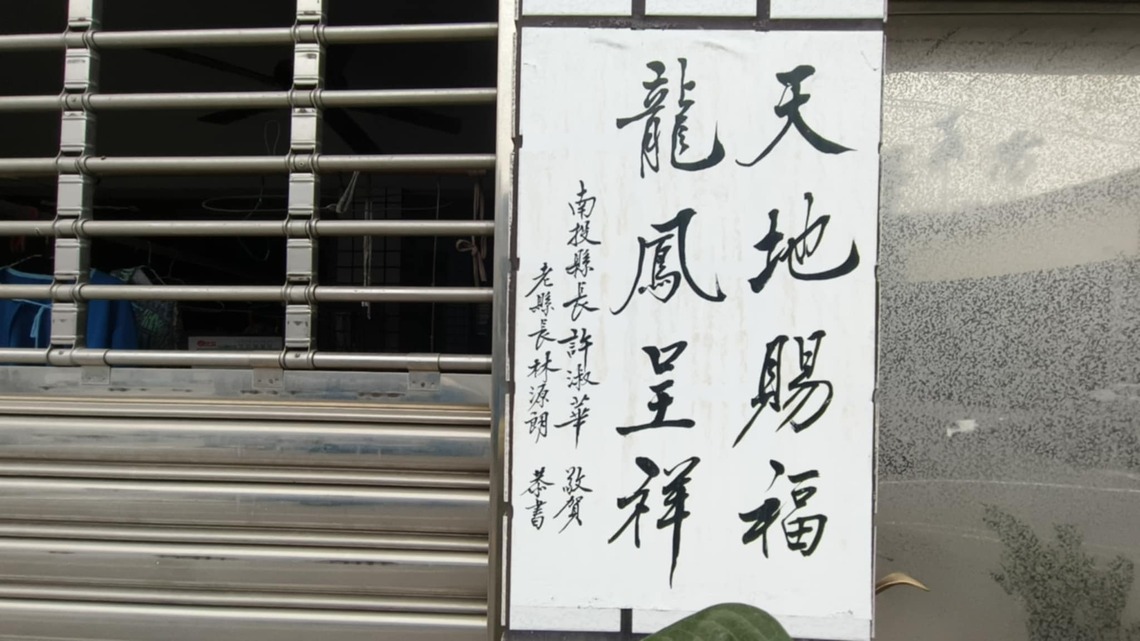 天地賜福
龍鳳呈祥
南投縣長許淑華 敬賀
老縣長林源朗 恭書